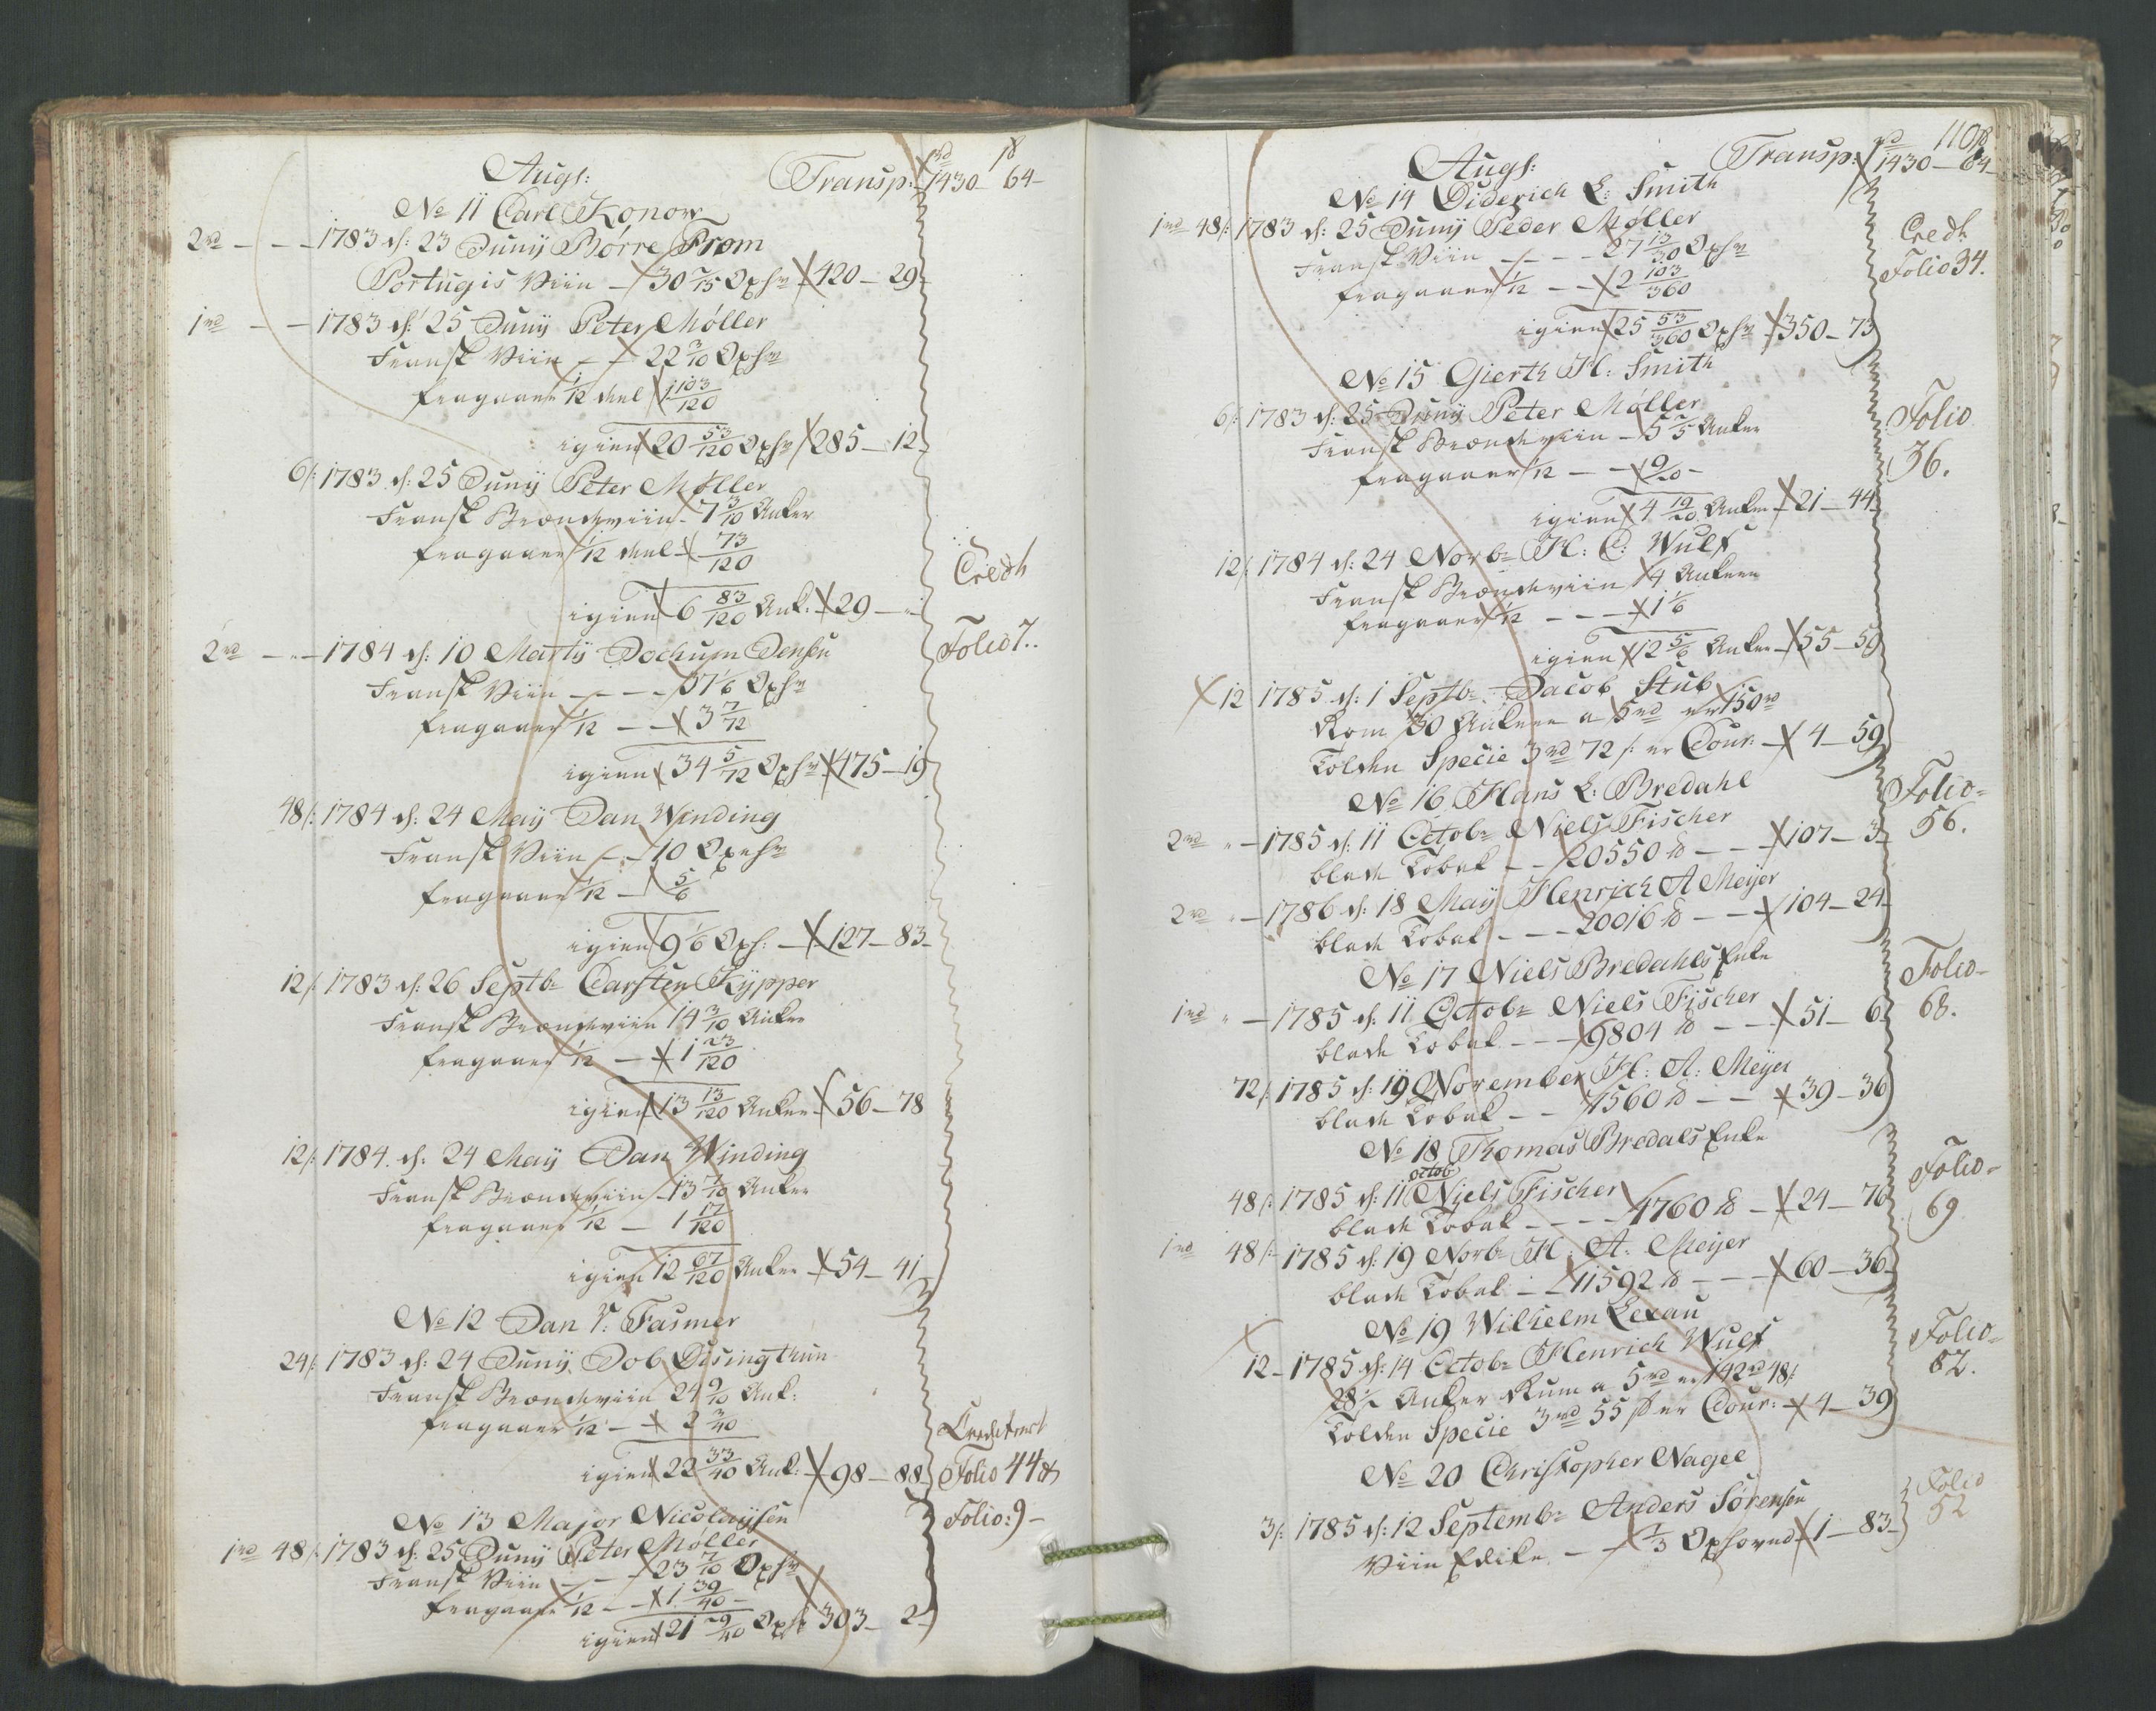 Augs:
Transp: rd 1430 – 64 – ß
No 11 Carl Konow
2rd – – – 1783 d: 23 Junÿ Børre From
Portugis Viin – 30 7/15 Oxhr 420 – 29
1rd – – 1783 d: 25 Junÿ Peter Møller
Fransk Viin – – 22 3/10 Oxhr
fragaaer 1/12 deel 1 103/120
igien 20 53/120 Oxhr 285 – 12
6/: 1783 d: 25 Junÿ Peter Møller
Fransk Brændeviin – 7 3/10 Anker
fragaaer 1/12 deel 73/120
igien 6 83/120 Ank: 29 – "
Credt
Folio 7.
2rd – " – 1784 d: 10 Martÿ Jochum Jensen
Fransk Viin – – – 37 1/6 Oxhr
fragaaer 1/12 – – 3 7/72
igien 34 5/72 Oxhr 475 – 19
48/: 1784 d: 24 Maÿ Dan Winding
Fransk Viin – – 10 Oxehr
fragaaer 1/12 – 5/6
igien 9 1/6 Oxh: – 127 – 83
12/: 1783 d: 26 Septbr Carsten Kÿpper
Fransk Brændeviin 14 3/10 Anker
fragaaer 1/12 – 1 23/120
igien 13 13/120 Anker – 56 – 78
12/: 1784 d: 24 Maÿ Dan Winding
Fransk Brændeviin – 13 7/10 Anker
fragaaer 1/12 – 1 17/120
igien 12 67/120 Anker 54 – 41
No 12 Dan V. Fasmer
24/: 1783 d: 24 Junÿ Job
Fransk Brændeviin 24 9/10 Ank:
fragaaer 1/12 – 2 3/40
igien 22 33/40 Ank: 98 – 88
Crediteret
Folio 44
No 13 Major Nicolaÿsen
Folio: 9 –
1rd 48/: 1783 d: 25 Junÿ Peter Møller
Fransk Viin – – – 23 7/10 Oxhr
fragaaer 1/12 – – 1 39/40 –
igien 21 29/40 Oxhr 303 – 2
110
Augs:
Transp: rd 1430 – 64 – ß
No 14 Diderich L: Smith
1rd 48/: 1783 d: 25 Junÿ Peder Møller
Fransk Viin – – – – 27 13/30 Oxhr
fragaaer 1/12 – – 2 103/360
igien 25 53/360 Oxhr 350 – 73
Credt
Folio 34.
No 15 Gierth H: Smith
6/: 1783 d: 25 Junÿ Peter Møller
Fransk Brændeviin – 5 2/5 Anker
fragaaer 1/12 – – 9/20 –
igien 4 19/20 Anker 21 – 44
Folio
36.
12/: 1784 d: 24 Novbr H: C: Wulf
Fransk Brændeviin 14 Ankere
fragaaer 1/12 – – – 1 1/6
igien 12 5/6 Anker – 55 – 59
12 1785 d: 1 Septbr Jacob Stub
Rom 30 Ankere a 5rd er 150rd
Tolden Specie 3rd 72 ß er Cour: – 4 – 59
No 16 Hans L: Bredahl
2rd " – 1785 d: 11 Octobr Niels Fischer
blade Tobak – – 20550 ℔ – – – 107 – 3
Folio –
56.
2rd " – 1786 d: 18 Maÿ Henrich A Meÿer
blade Tobak – – – 20016 ℔ – – – 104 – 24
No 17 Niels Bredahls Enke
1rd " – 1785 d: 11 Octobr Niels Fischer
blade Tobak – – – 9804 ℔ – – – 51 – 6
Folio –
68.
72/: 1785 d: 19 November H: A: Meÿer
blade Tobak – – 7560 ℔ – – 39 – 36
No 18 Thomas Bredals Enke
octob
48/: 1785 d: 11 Niels Fischer
blade Tobak – – – – 4760 ℔ – 24 – 76
Folio –
69
1rd 48/: 1785 d: 19 Novbr H: A: Meÿer
blade Tobak – – 11592 ℔ – – – 60 – 36
No 19 Wilhelm Lexau
12 – 1785 d: 14 Octobr Henrich Wulf
28 1/2 Anker Rum a 5rd er 142rd 48/:
Tolden Specie 3rd 55 ß er Cour: – 4 – 39
Folio –
62.
No 20 Christopher Nagel
3/: 1785 d: 12 Septembr Anders Sørensen
Viin Edike – – 1/3 Oxhoved 1 – 83
Folio
52